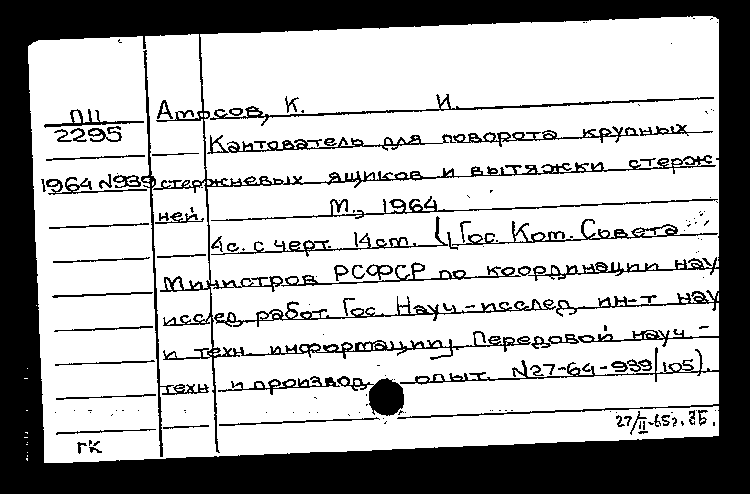 П11 Атосов, К. И.
2295 Кантователь для поворота крупных
1964 №939 стержневых ящиков и вытяжки стерж-
ней. М., 1964
4с. с черт. 14ст. (Гос. Ком. Совета
Министров РСФСР по координации нау
исслед. работ. Гос. Науч.-исслед. ин-т нау
и техн. информации. Передовой науч.-
техн. и производ. опыт. №27-64-939/105).
27/II-65г.
ГК